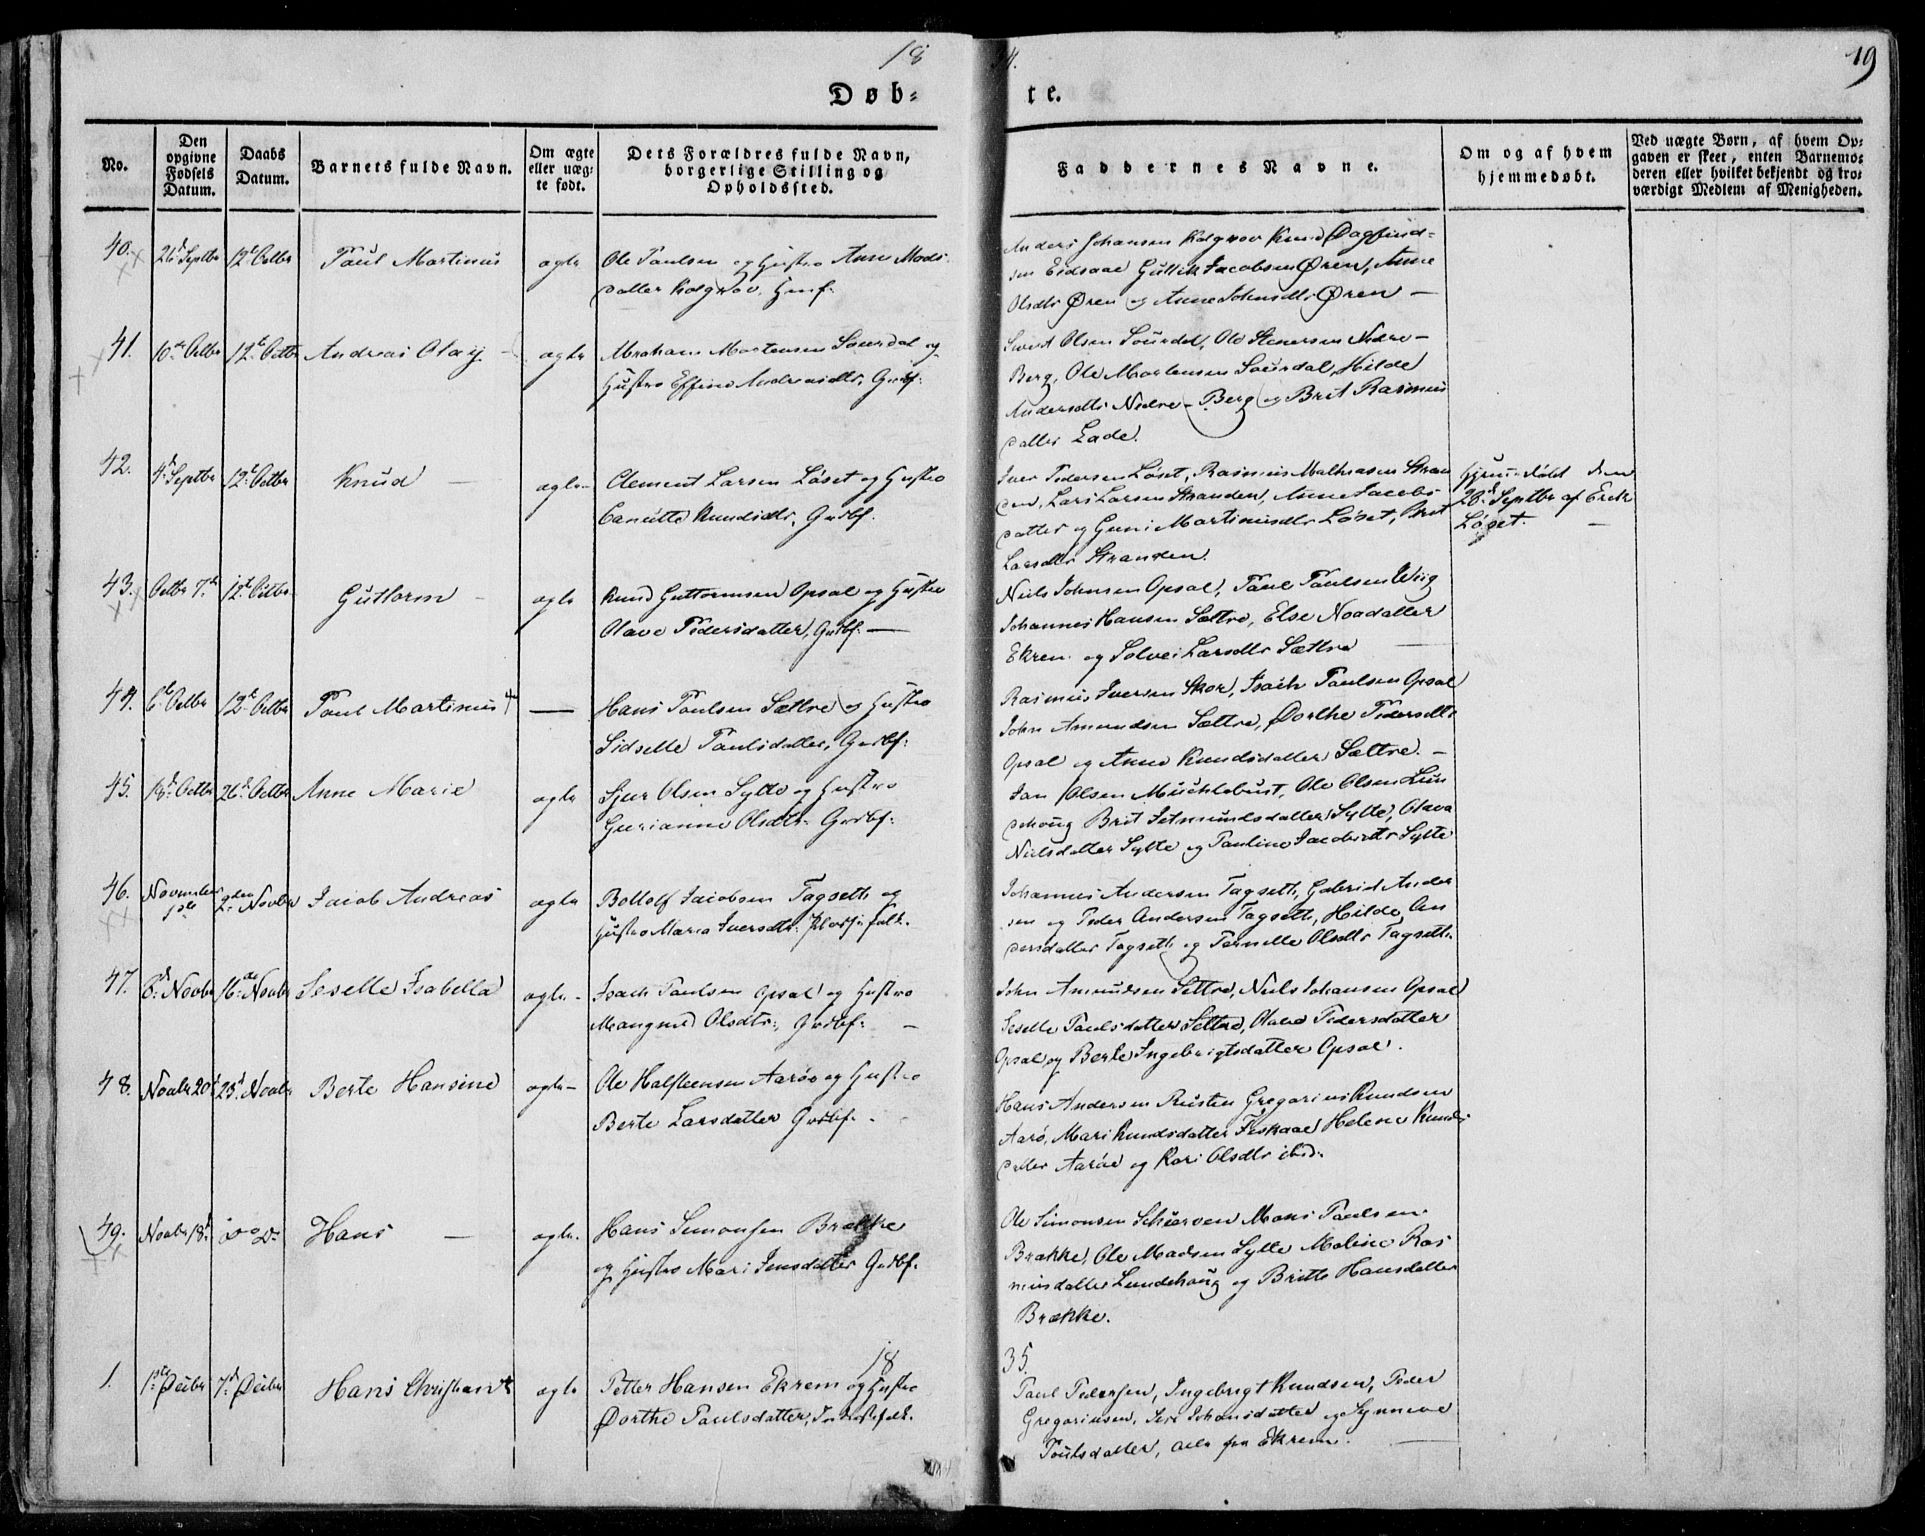 18 34.
19
Døb-
te.
No.
Den opgivne Fødsels Datum.
Daabs Datum.
Barnets fulde Navn.
Om ægte eller uæg-te født.
Dets Forældres fulde Navn, borgerlige Stilling og Opholdssted.
Faddernes Navne.
Om og af hvem hjemmedøbt.
Ved uægte Børn, af hvem Op-gaven er skeet, enten Barnemo-deren eller hvilket bekjendt og tro-værdigt Medlem af Menigheden.
40. 26d Septbr 12t Octbr Paul Martinus ægte
Ole Paulsen og Hustro Anne Mads-
datter
Anders Johansen Knud Dagfind-
sen Eidsaae Gullik Jacobsen Øren, Anne
Olsdtr Øren og Anne Johnsdtr Øren —
41. 10de Octbr 12t Octbr Andreas Olay — ægte
Abraham Mortensen Sourdal og
Hustro Effine Andreasdtr, Grdbf.
Sivert Olsen Sourdal, Ole Stenersen Nedre-
Berg, Ole Mortensen Sourdal, Hilde
Andersdtr Nedre-Berg og Brit Rasmus
datter Lade.
42. 4d Septbr 12t Octbr Knud — ægte—
Clement Larsen Löset og Hustro
Canutte Knudsdtr, Grdbf.
Iver Pedersen Löset, Rasmus Mathiasen Stran
den, Lars Larsen Stranden, Anne Jacobs-
datter og Guni Martinusdtr Löset, Brit
Larsdtr Stranden.
Hjemmedøbt den
28d Septbr af Erik
Löset. —
43. Octbr 7de 12t Octbr Guttorm — ægte
Knud Guttormsen Opsal og Hustro
Olave Pedersdatter, Grdbf. —
Niels Johnsen Opsal, Paul Paulsen Wiig
Johannes Hansen Sættre, Else Noadatter
Ekren og Solvei Larsdtr Sættre
44. 6t Octbr 12t Octbr Paul Martinus —
Hans Paulsen Sættre og Hustro
Sidselle Paulsdatter, Grdbf.
Rasmus Iversen Skor, Isach Paulsen Opsal
John Amundsen Sættre, Dorthe Pedersdtr
Opsal og Anne Knudsdatter Sættre. —
45. 18d Octbr 26d Octbr Anne Marie ægte
Sjur Olsen Sylte og Hustro
Gurianne Olsdtr. Grdbf.
Jan Olsen Müchlebust, Ole Olsen Lun
dehoug Brit Setmundsdatter Sylte, Olava
Nielsdatter Sylte og Pauline Jacobsdtr Sylte
46. November 1ste 2den Novbr Jacob Andreas ægte
Bottolf Jacobsen Tagseth og
Hustro Maria Iversdtr.
Johannes Andersen Tagseth, Gabriel Ander
sen og Peder Andersen Tagseth, Hilde An
dersdatter Tagseth og Pernelle Olsdtr Tagseth.
47. 6d Novbr 16de Novbr Seselle Isabella ægte—
Isach Paulsen Opsal og Hustro
Mangned Olsdtr., Grdbf. —
John Amundsen Settre, Niels Johansen Opsal
Seselle Paulsdatter Settre, Olave Pedersdatter
Opsal og Berte Ingebrigtsdatter Opsal.
48. Novbr 20d 23d Novbr Berte Hansine ægte—
Ole Halsteensen Aaröe og Hustro
Berte Larsdatter Grdbf. —
Hans Andersen Rusten Gregorius Knudsen
Aarö, Mari Knudsdatter Fiskaae Helene Knuds
datter Aaröe og Kari Olsdtr ibid.
49. Novbr 18d do do Hans — ægte.
Hans Simonsen Brække
og Hustro Mari Jensdatter Grdbf.
Ole Simonsen Mons Paulsen
Brække, Ole Madsen Sylte Maline Ras
musdatter Lundehoug og Britte Hansdatter
Brække.
18 35.
1. 1ste Decbr 7d Decbr Hans Christian ægte
Petter Hansen Ekrem og Hustro
Dorthe Paulsdatter,
Paul Pedersen, Ingebrigt Knudsen, Peder
Gregoriusen, Siri Johansdatter og Synneve
Poulsdatter, alle fra Ekrem. —